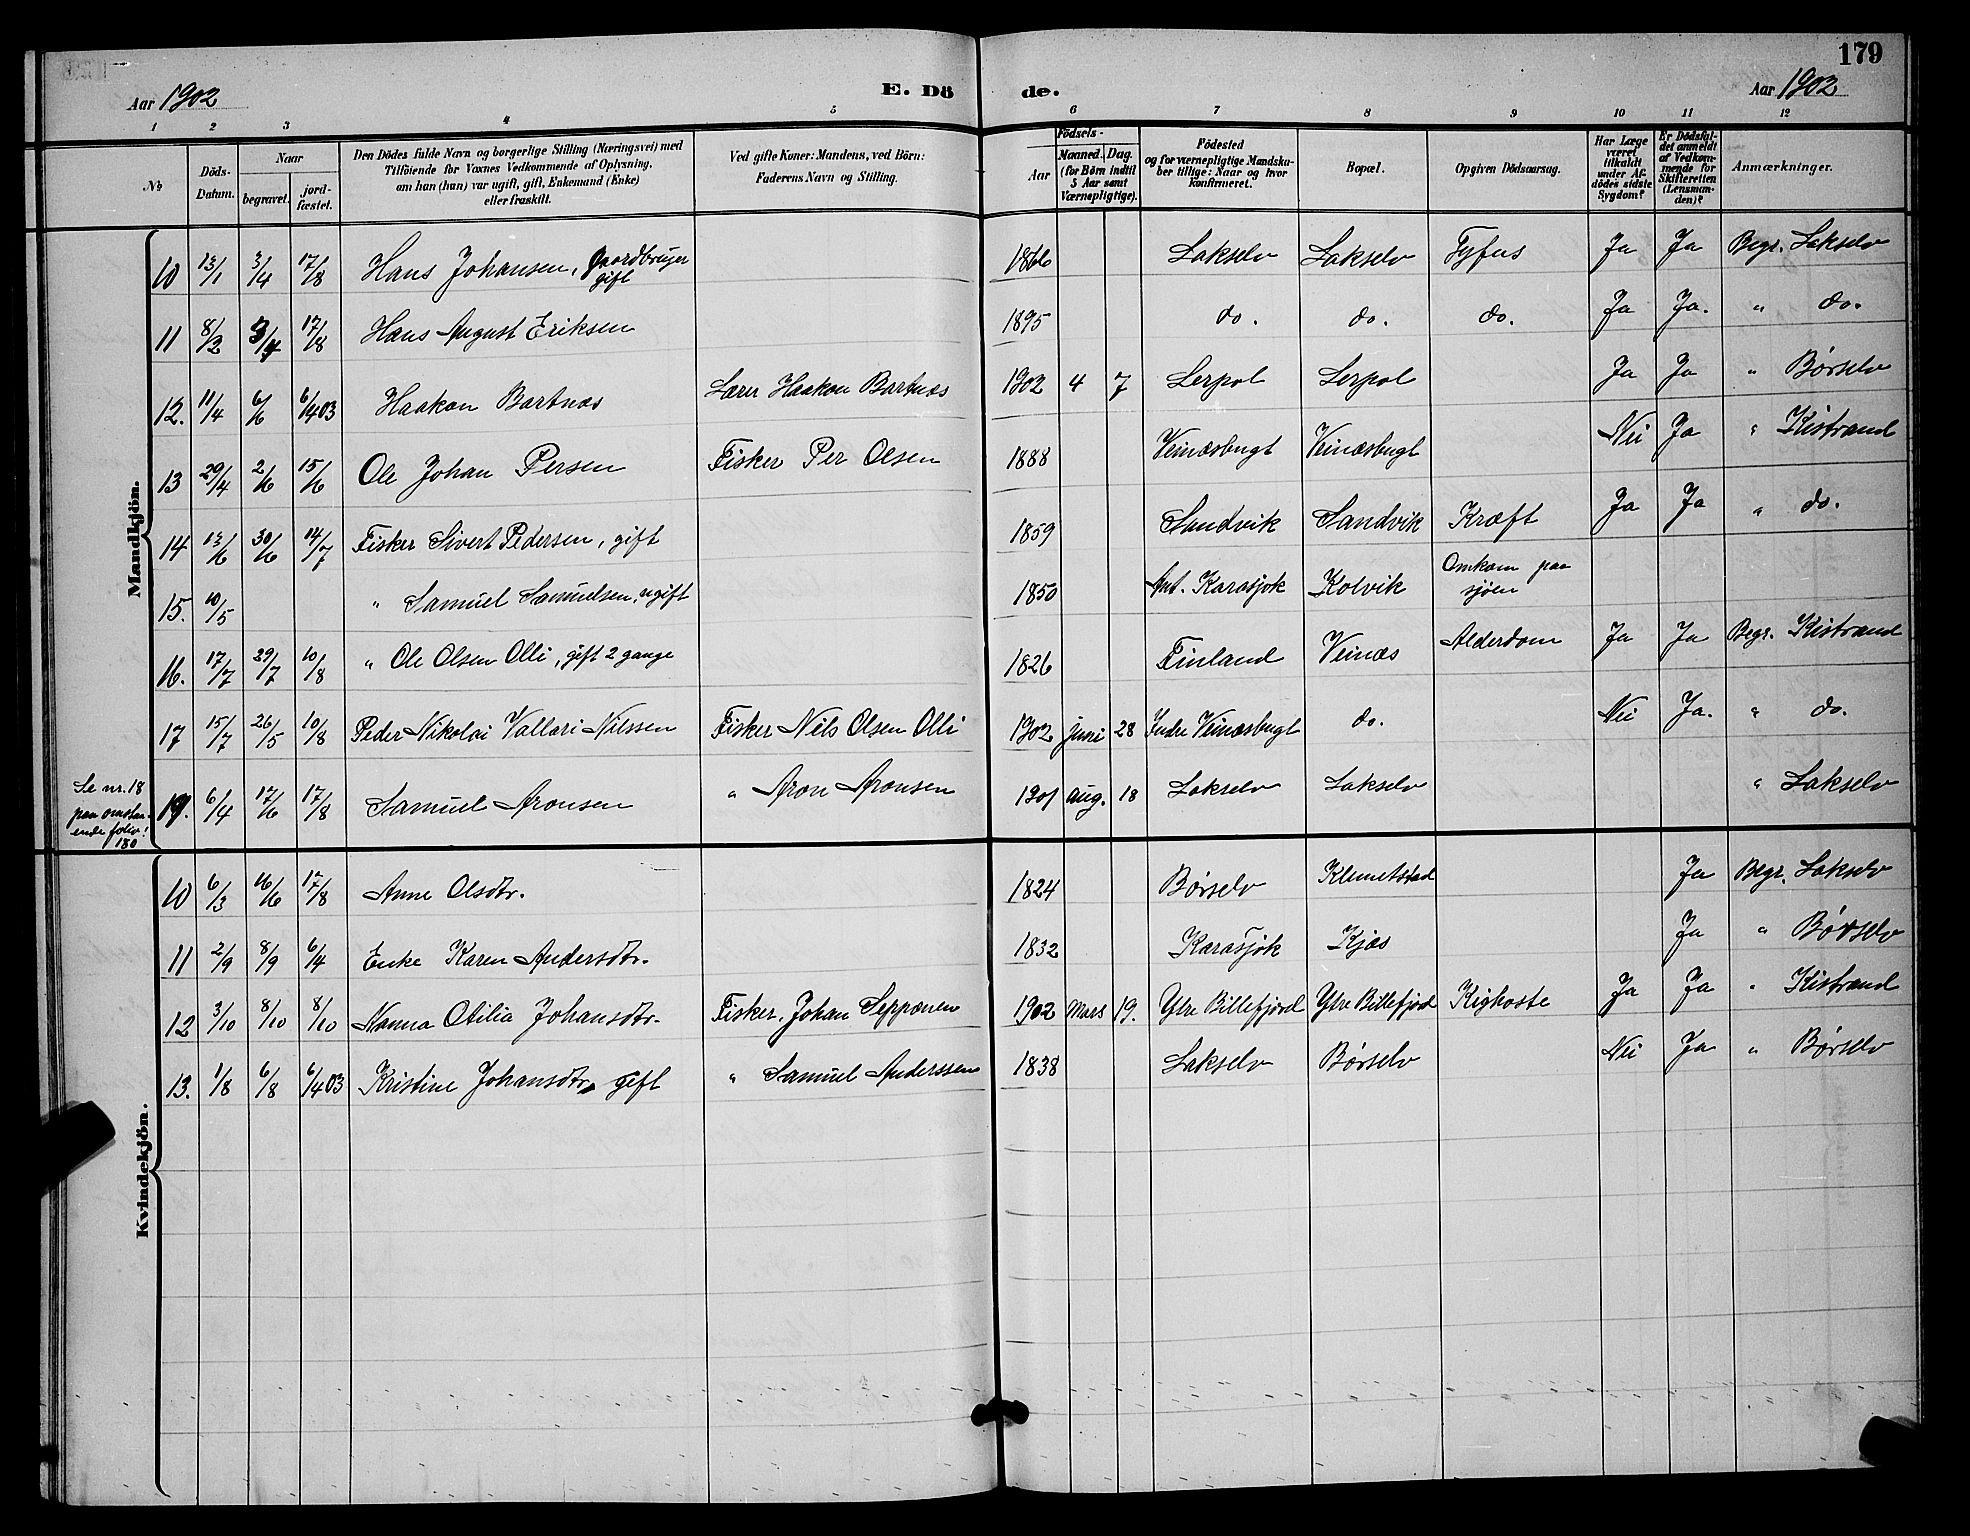 179
Aar 1902 E. Dö de. Aar 1902
1 2 3 4 5 6 7 8 9 10 11 12
№
Döds-Datum.
Naar
begravet.
jord-fæstet.
Den Dödes fulde Navn og borgerlige Stilling (Næringsvei) med
Tilföiende for Voxnes Vedkommende af Oplysning,
om han (hun) var ugift, gift, Enkemand (Enke)
eller fraskilt.
Ved gifte Koner: Mandens, ved Börn:
Faderens Navn og Stilling.
Födsels-
Aar
Maaned. Dag.
(for Börn indtil
5 Aar samt
Værnepligtige).
Födested
og for værnepligtige Mandska-
ber tillige: Naar og hvor
konfirmeret.
Bopæl.
Opgiven Dödsaarsag.
Har Læge
været
tilkaldt
under Af-
dödes sidste
Sygdom?
Er Dödsfal-
det anmeldt
af Vedkom-
mende for
Skifteretten
(Lensman-
den)?
Anmærkninger.
Mandkjön.
10 13/1 3/4 17/8 Hans Johansen, Gaardbruger gift 1866 Lakselv Lakselv Tyfus Ja Ja Begr. Lakselv
11 8/2 3/4 17/8 Hans August Eriksen 1895 do. do. do. Ja Ja. " do.
12. 11/4 6/6 6/4 03 Haakon Bartnæs Lærer Haakon Bartnæs 1902 4 7 Lerpol Lerpol Ja Ja " Børselv
13 29/4 2/6 15/6 Ole Johan Persen Fisker Per Olsen 1888 Veinæsbugt Veinæsbugt Nei Ja " Kistrand
14 13/6 30/6 14/7 Fisker Sivert Pedersen, gift 1859 Sandvik Sandvik Kræft Ja Ja " do.
15. 10/5 " Samuel Samuelsen, ugift 1850 Karasjok Kolvik Omkom paa sjøen
16. 17/7 29/7 10/8 " Ole Olsen Olli, gift 2 gange 1826 Finland Veinæs Alderdom Ja Ja Begr. Kistrand
17 15/7 26/5 10/8 Peder Nikolai Vallari Nilssen Fisker Nils Olsen Olli 1902 juni 28 Indre Veinæsbugt do. Nei Ja. " do.
Se nr. 18
paa omstaa-
ende folio!
180
19. 6/4 17/6 17/8 Samuel Aronsen " Aron Aronsen 1901 aug. 18 Lakselv Lakselv " Lakselv
Kvindekjön.
10 6/3 16/6 17/8 Anne Olsdtr. 1824 Børselv Klemetstad Ja Begr. Lakselv
11 2/9 8/9 6/4 Enke Karen Andersdtr. 1832 Karasjok Kjæs Ja " Børselv
12 3/10 8/10 8/10 Nanna Otilia Johansdtr. Fisker, Johan Seppænen 1902 Mars 19. Ytre Billefjord Ytre Billefjod Kighoste Ja Ja " Kistrand
13. 1/8 6/8 6/4 03 Kristine Johansdtr. gift " Samuel Anderssen 1838 Lakselv Børselv Nei Ja " Børselv